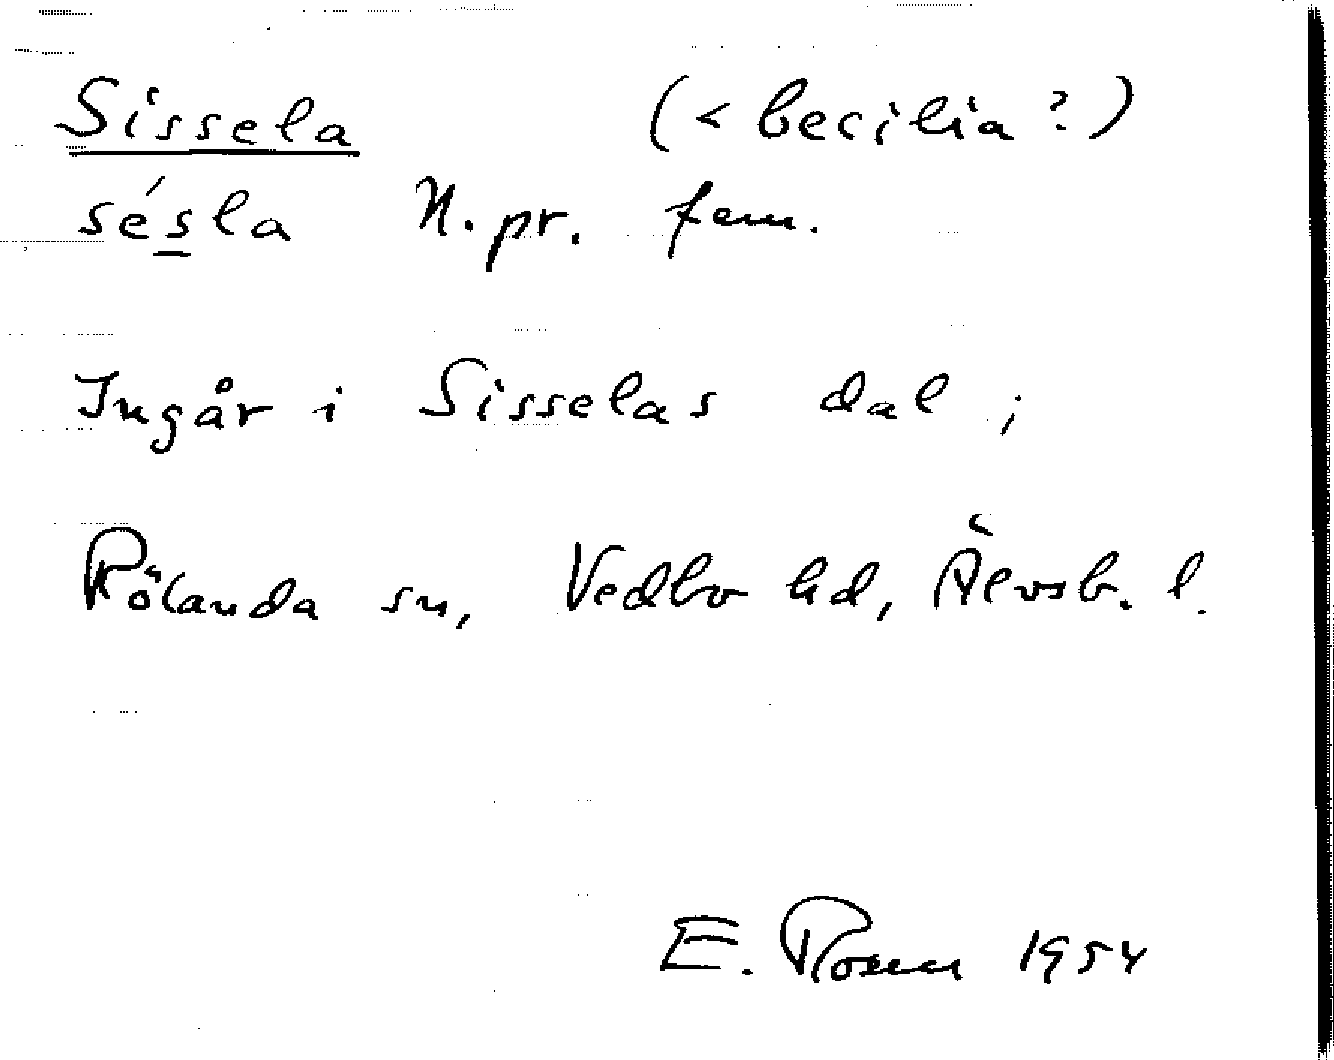 Sissela (< Cecilia?)
sés̲la N. pr. fem.
Ingår i Sisselas dal;
Rölanda sn, Vedbo hd, Älvsb. l.
E. Rosen 1954